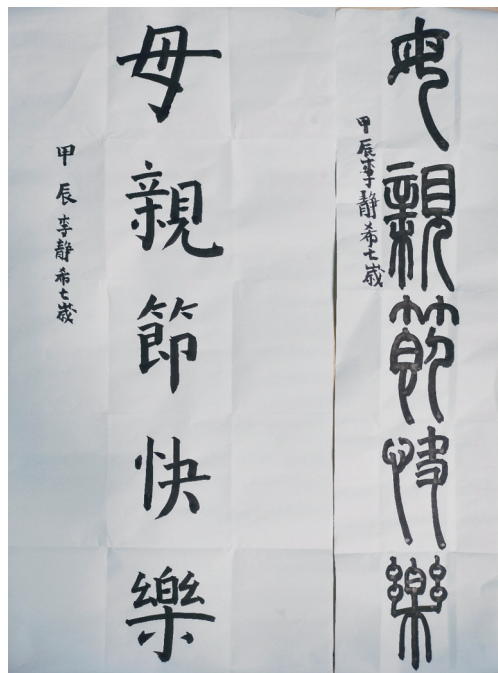 母親節快樂
甲辰李靜希七歲
母親節快樂
甲辰李靜希七歲